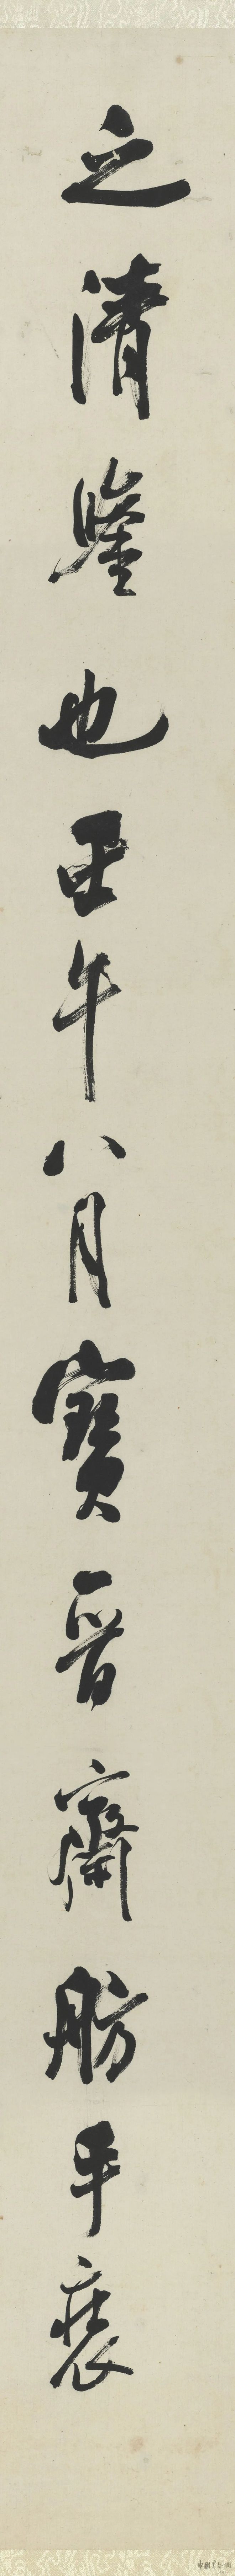 之清鑒也壬午八月寶晉齋舫手裝